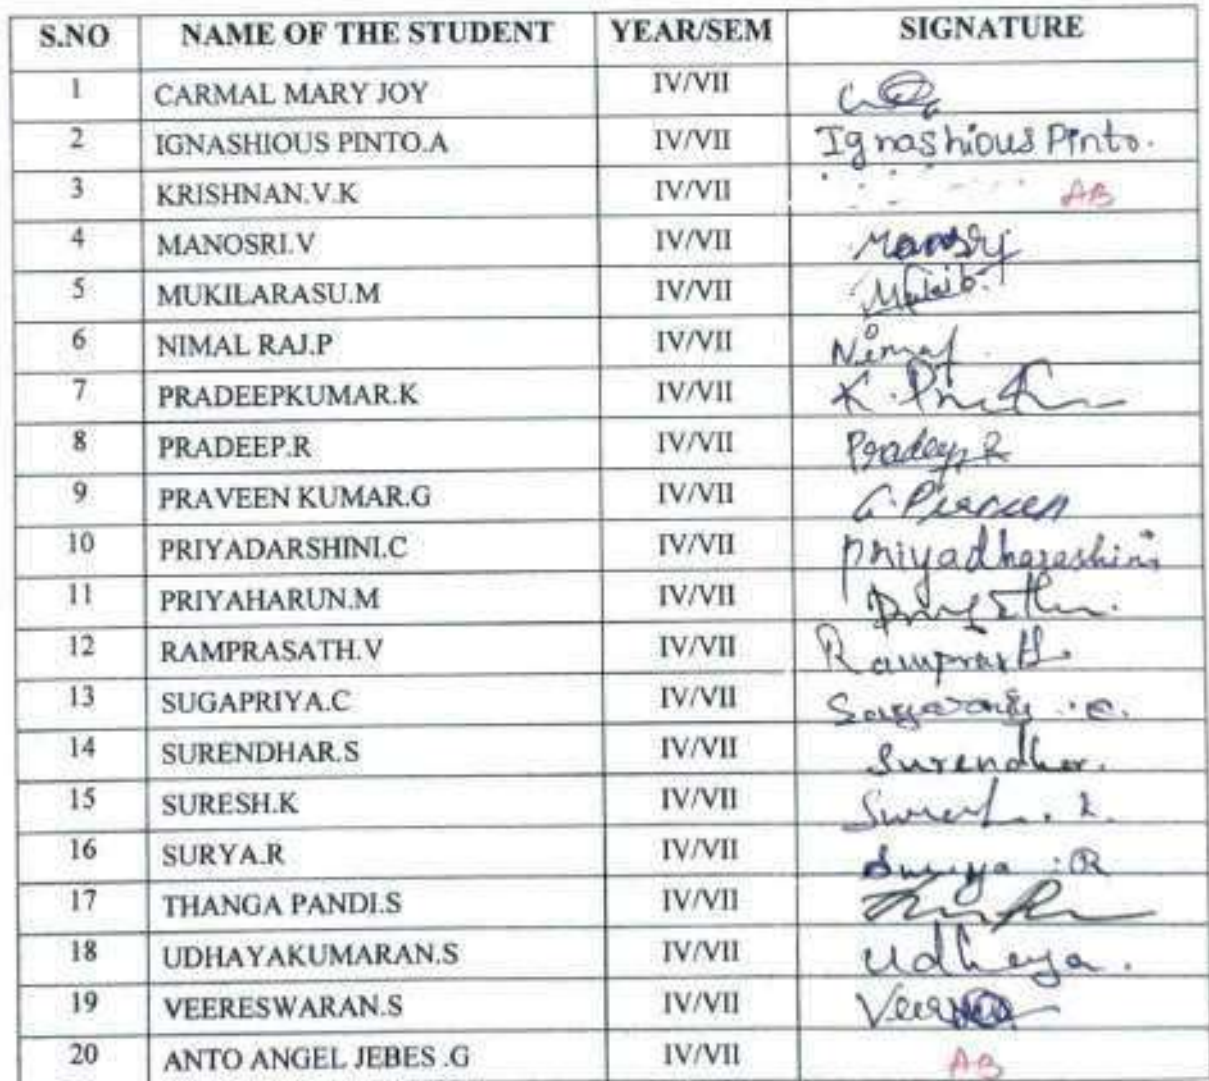 S.NO NAME OF THE STUDENT YEAR/SEM SIGNATURE
1 CARMAL MARY JOY IV/VII
2 IGNASHIOUS PINTO.A IV/VII Ignashious Pinto.
3 KRISHNAN.V.K IV/VII AB
4 MANOSRI.V IV/VII
5 MUKILARASU.M IV/VII
6 NIMAL RAJ.P IV/VII Nimal
7 PRADEEPKUMAR.K IV/VII
8 PRADEEP.R IV/VII Pradeep R
9 PRAVEEN KUMAR.G IV/VII
10 PRIYADARSHINI.C IV/VII
11 PRIYAHARUN.M IV/VII
12 RAMPRASATH.V IV/VII
13 SUGAPRIYA.C IV/VII
14 SURENDHAR.S IV/VII Surendhar.
15 SURESH.K IV/VII
16 SURYA.R IV/VII
17 THANGA PANDI.S IV/VII
18 UDHAYAKUMARAN.S IV/VII Udhaya.
19 VEERESWARAN.S IV/VII
20 ANTO ANGEL JEBES .G IV/VII AB